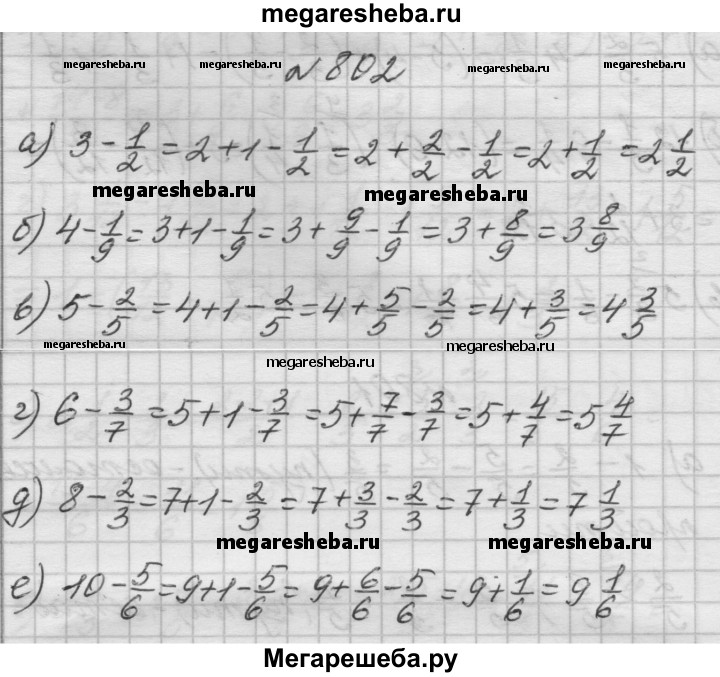 megaresheba.ru
megaresheba.ru megaresheba.ru №802 megaresheba.ru megaresheba.ru
а) 3 - 1/2 = 2 + 1 - 1/2 = 2 + 2/2 - 1/2 = 2 + 1/2 = 2 1/2
megaresheba.ru megaresheba.ru
б) 4 - 1/9 = 3 + 1 - 1/9 = 3 + 9/9 - 1/9 = 3 + 8/9 = 3 8/9
в) 5 - 2/5 = 4 + 1 - 2/5 = 4 + 5/5 - 2/5 = 4 + 3/5 = 4 3/5
megaresheba.ru megaresheba.ru megaresheba.ru
г) 6 - 3/7 = 5 + 1 - 3/7 = 5 + 7/7 - 3/7 = 5 + 4/7 = 5 4/7
д) 8 - 2/3 = 7 + 1 - 2/3 = 7 + 3/3 - 2/3 = 7 + 1/3 = 7 1/3
megaresheba.ru megaresheba.ru
е) 10 - 5/6 = 9 + 1 - 5/6 = 9 + 6/6 - 5/6 = 9 + 1/6 = 9 1/6
Мегарешеба.ру